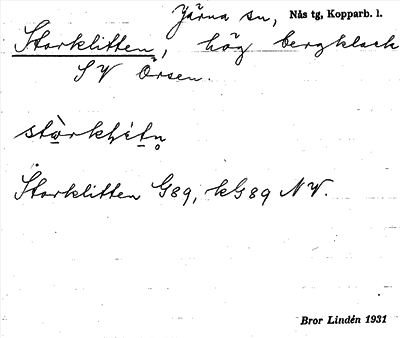 Järna sn, Nås tg, Kopparb. l.
Storklitten, hög bergklack
SV Örsen.
Storklitten G89, kG89 NV.
Bror Lindén 1931